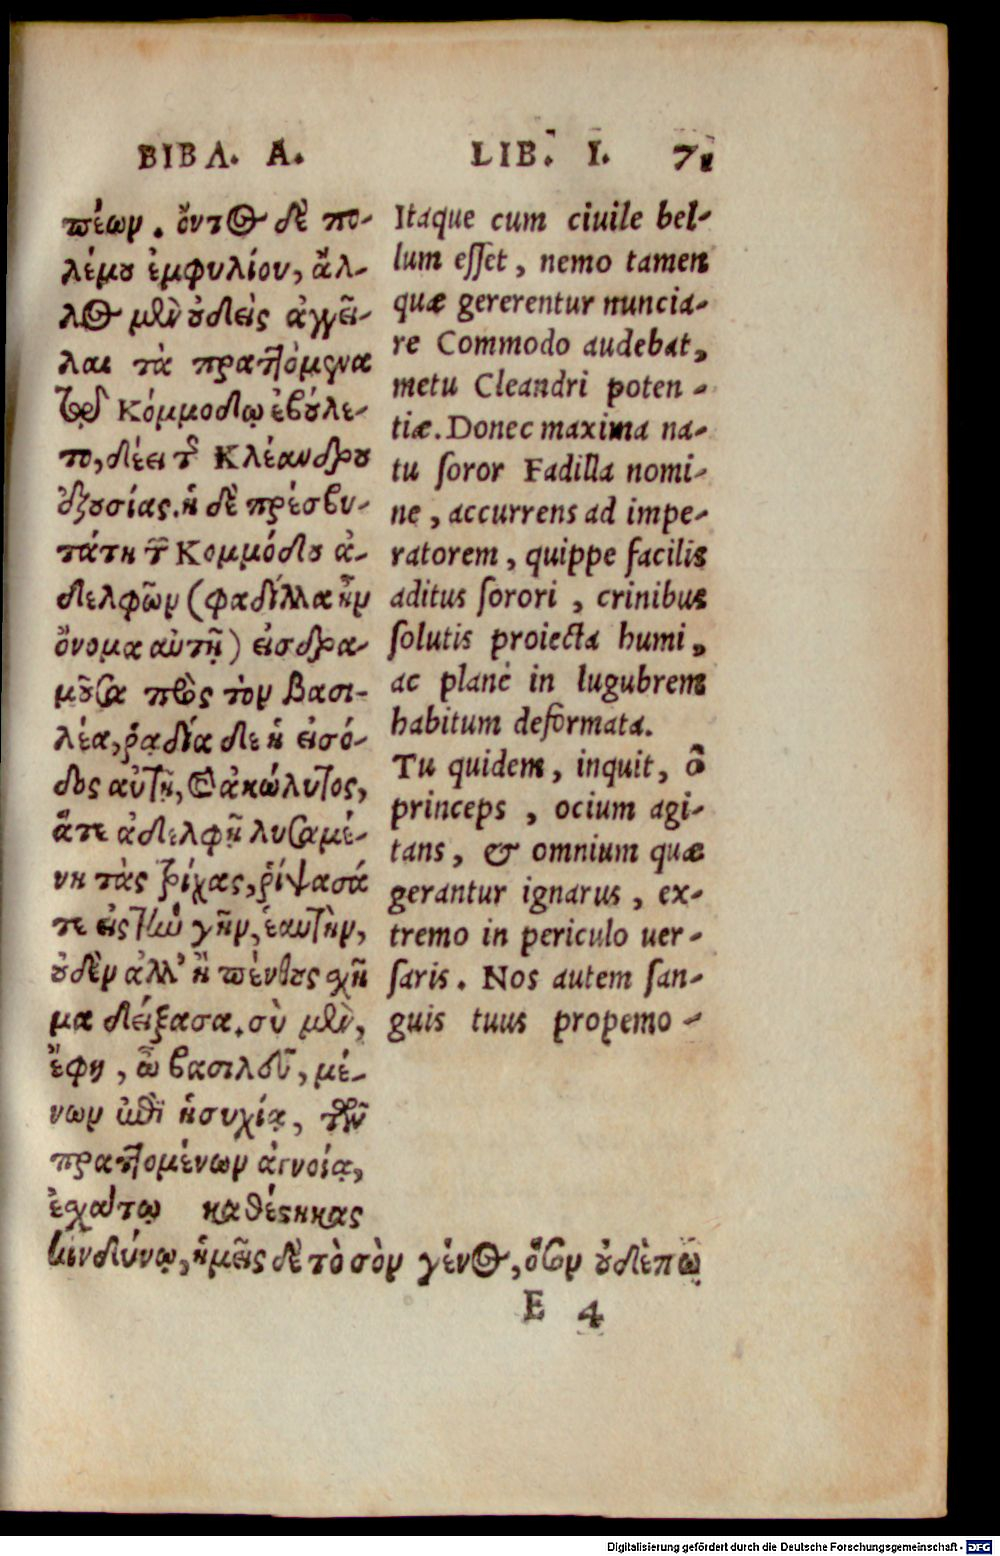 ΒΙΒΛ. Α.
πέων. ὄντος δὲ πο-
λέμου ἐμφυλίου, ἄλ-
λος μὲν οὐδεὶς ἀγγεῖ-
λαι τὰ πραττόμενα
τῷ Κόμμοδῳ ἐβούλε-
το, δέει τοῦ Κλέανδρου
ἐξουσίας. ἡ δὲ πρέσβυ-
τάτη τοῦ Κομμόδου ἀ-
δελφῶν (φαδίλλα ἦν
ὄνομα αὐτῇ) εἰσδρα-
μοῦσα πρὸς τὸν βασι-
λέα, ῥᾳδία δὲ ἡ εἰσό-
δος αὐτῇ, καὶ ἀκώλυτος,
ἅτε ἀδελφῇ λυσαμέ-
νη τὰς τρίχας, ῥίψασά
τε εἰς τὴν γῆν, ἑαυτὴν,
οὐδὲν ἀλλ' ἢ πένθους σχῆ
μα δείξασα. σὺ μὲν,
ἔφη, ὦ βασιλεῦ, μέ-
νων ἐπὶ ἡσυχίᾳ, τῶν
πραττομένων ἀγνοίᾳ,
ἐχάτῳ καθέστηκας
κινδύνῳ, ἡμεῖς δὲ τὸ σὸν γένος, ὅσον οὐδέπω
LIB. I. 71
Itaque cum ciuile bel-
lum esset, nemo tamen
quæ gererentur nuncia-
re Commodo audebat,
metu Cleandri poten-
tiæ. Donec maxima na-
tu soror Fadilla nomi-
ne, accurrens ad impe-
ratorem, quippe facilis
aditus sorori, crinibus
solutis proiecta humi,
ac planè in lugubrem
habitum deformata.
Tu quidem, inquit, ô
princeps, ocium agi-
tans, & omnium quæ
gerantur ignarus, ex-
tremo in periculo uer-
saris. Nos autem san-
guis tuus propemo-
E 4
Digitalisierung gefördert durch die Deutsche Forschungsgemeinschaft - DFG